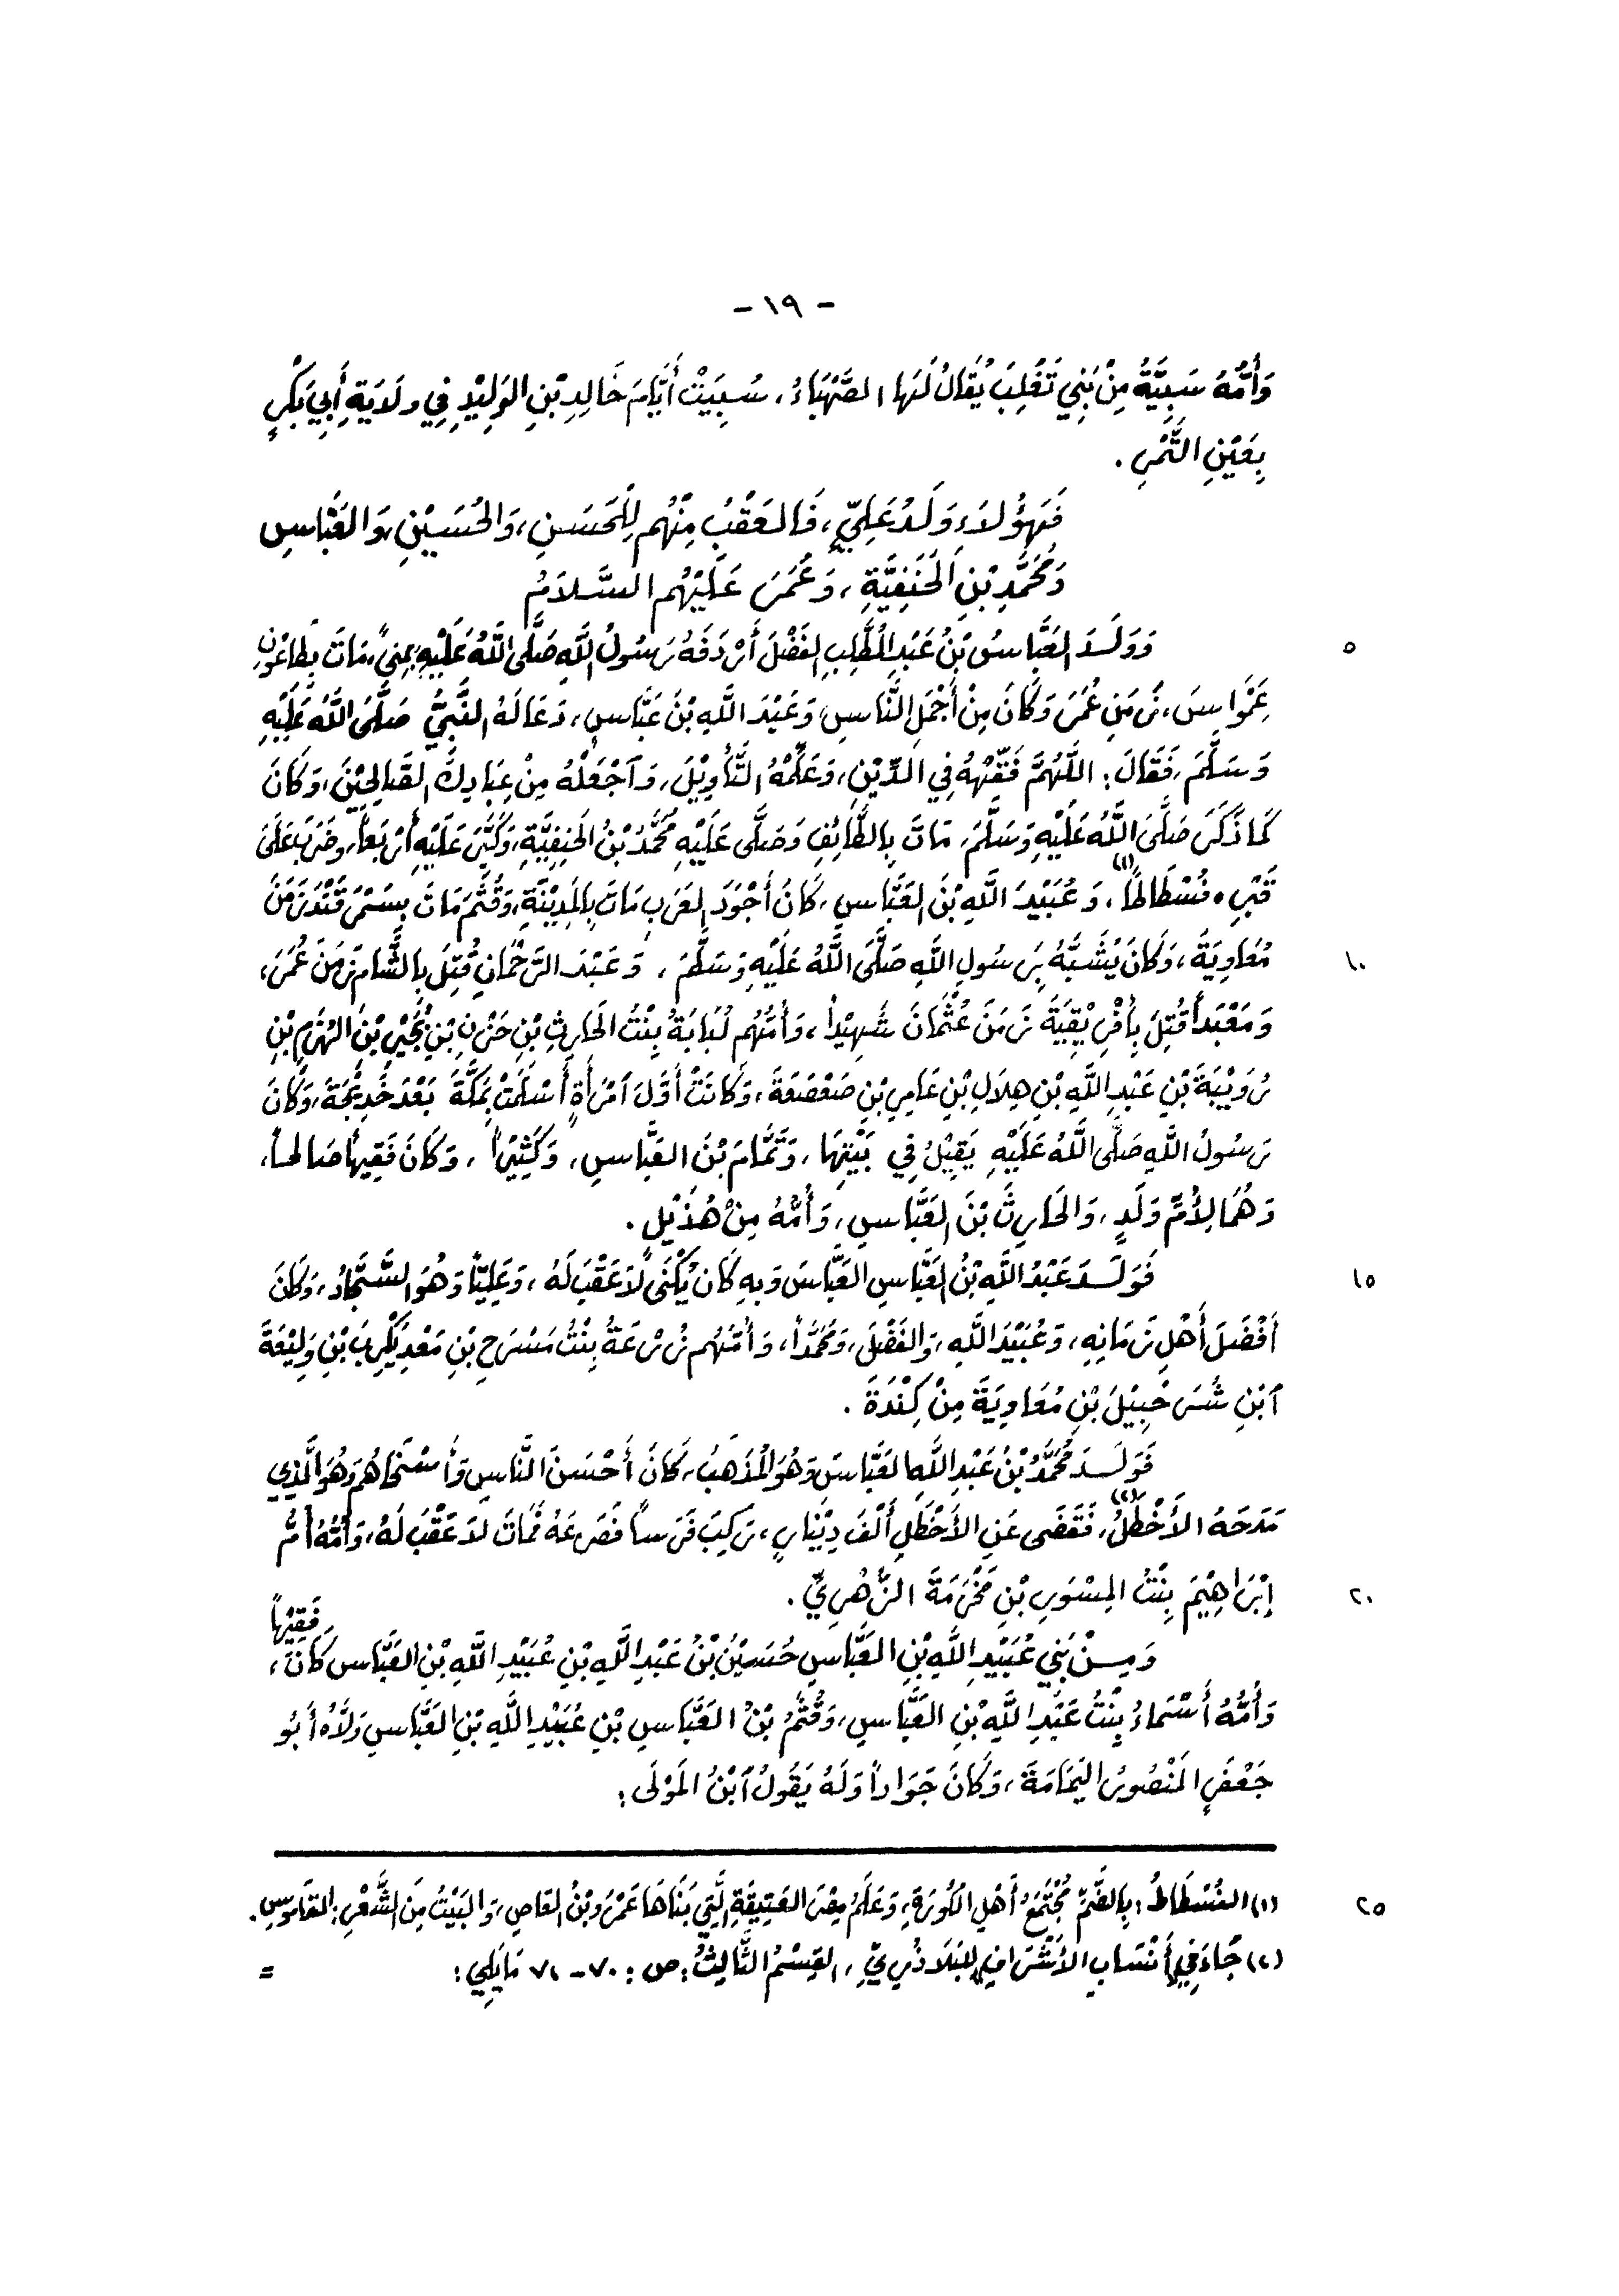 - ١٩ -
وَأُمُّهُ سَبِيَّةٌ مِنْ بَنِي تَغْلِبَ يُقَالُ لَهَا الصَّهْبَاءُ، سُبِيَتْ أَيَّامَ خَالِدِ بْنِ الوَلِيْدِ فِي وِلاَيَةِ أَبِي بَكْرٍ
بِعَيْنِ التَّمْرِ.
فَهَؤُلاَءِ وَلَدُ عَلِيٍّ، فَالعَقْبُ مِنْهُم لِلْحَسَنِ، وَالحُسَيْنِ، وَالعَبَّاسِ
وَمُحَمَّدِ بْنِ الحَنَفِيَّةِ، وَعُمَرَ عَلَيْهِم السَّلاَمُ
٥ وَوَلَدَ العَبَّاسُ بْنُ عَبْدِ المُطَّلِبِ الفَضْلَ أَرْدَفَهُ رَسُولُ اللَّهِ صَلَّى اللَّهُ عَلَيْهِ بِمِنىً، مَاتَ بِطَاعُونِ
عَمْوَاسَ، زَمَنِ عُمَرَ وَكَانَ مِنْ أَجْمَلِ النَّاسِ، وَعَبْدَ اللَّهِ بْنَ عَبَّاسٍ، دَعَا لَهُ النَّبِيُّ صَلَّى اللَّهُ عَلَيْهِ
وَسَلَّمَ، فَقَالَ: اللَّهُمَّ فَقِّهْهُ فِي الدِّيْنِ، وَعَلِّمْهُ التَّأْوِيْلَ، وَآجْعَلْهُ مِنْ عِبَادِكَ الصَّالِحِيْنَ، وَكَانَ
كَمَا ذَكَرَ صَلَّى اللَّهُ عَلَيْهِ وَسَلَّمَ، مَاتَ بِالطَّائِفِ وَصَلَّى عَلَيْهِ مُحَمَّدُ بْنُ الحَنَفِيَّةِ، وَكَبَّرَ عَلَيْهِ أَرْبَعاً، وَضَرَبَ عَلَى
قَبْرِهِ فُسْطَاطاً(١)، وَعُبَيْدَ اللَّهِ بْنَ العَبَّاسِ، كَانَ أَجْوَدَ العَرَبِ مَاتَ بِالمَدِيْنَةِ، وَقُثَمَ مَاتَ بِسَمَرْقَنْدَ زَمَنَ
١٠ مُعَاوِيَةَ، وَكَانَ يُشَبَّهُ بِرَسُولِ اللَّهِ صَلَّى اللَّهُ عَلَيْهِ وَسَلَّمَ، وَعَبْدَ الرَّحْمَانِ قُتِلَ بِالشَّامِ زَمَنَ عُمَرَ،
وَمَعْبَداً قُتِلَ بِأَفْرِيْقِيَةَ زَمَنَ عُثْمَانَ شَهِيْداً، وَأُمُّهُم لُبَابَةُ بِنْتُ الحَارِثِ بْنِ حَزْنِ بْنِ بُجَيْرِ بْنِ الهُزَمِ بْنِ
رُوَيْبَةَ بْنِ عَبْدِ اللَّهِ بْنِ هِلاَلِ بْنِ عَامِرِ بْنِ صَعْصَعَةَ، وَكَانَتْ أَوَّلَ آمْرَأَةٍ أَسْلَمَتْ بِمَكَّةَ بَعْدَ خَدِيْجَةَ، وَكَانَ
رَسُولُ اللَّهِ صَلَّى اللَّهُ عَلَيْهِ يَقِيْلُ فِي بَيْتِهَا، وَتَمَّامَ بْنَ العَبَّاسِ، وَكَثِيْراً، وَكَانَ فَقِيهاً صَالِحاً،
وَهُمَا لِأُمِّ وَلَدٍ، وَالحَارِثَ بْنَ العَبَّاسِ، وَأُمُّهُ مِنْ هُذَيْلٍ.
١٥ فَوَلَدَ عَبْدُ اللَّهِ بْنُ العَبَّاسِ العَبَّاسَ وَبِهِ كَانَ يُكْنَى لاَ عَقْبَ لَهُ، وَعَلِيّاً وَهُوَ السَّجَّادُ، وَكَانَ
أَفْضَلَ أَهْلِ زَمَانِهِ، وَعُبَيْدَ اللَّهِ، وَالفَضْلَ، وَمُحَمَّداً، وَأُمُّهُم زُرْعَةُ بِنْتُ مَسْرَحِ بْنِ مَعْدِيْكَرِبَ بْنِ وَلِيْعَةَ
آبْنِ شُرَحْبِيْلَ بْنِ مُعَاوِيَةَ مِنْ كِنْدَةَ.
فَوَلَدَ مُحَمَّدُ بْنُ عَبْدِ اللَّهِ العَبَّاسَ وَهُوَ المُذْهَبُ، كَانَ أَحْسَنَ النَّاسِ وَأَسْخَاهُم وَهُوَ الَّذِي
مَدَحَهُ الأَخْطَلُ(٢)، فَقَضَى عَنِ الأَخْطَلِ أَلْفَ دِيْنَارٍ، رَكِبَ فَرَساً فَصَرَعَهُ فَمَاتَ لاَ عَقْبَ لَهُ، وَأُمُّهُ أُمُّ
٢٠ إِبْرَاهِيْمَ بِنْتُ المِسْوَرِ بْنِ مَخْرَمَةَ الزُّهْرِيِّ.
وَمِنْ بَنِي عُبَيْدِ اللَّهِ بْنِ العَبَّاسِ حُسَيْنُ بْنُ عَبْدِ اللَّهِ بْنِ عُبَيْدِ اللَّهِ بْنِ العَبَّاسِ كَانَ فَقِيْهاً،
وَأُمُّهُ أَسْمَاءُ بِنْتُ عَبْدِ اللَّهِ بْنِ العَبَّاسِ، وَقُثَمُ بْنُ العَبَّاسِ بْنِ عُبَيْدِ اللَّهِ بْنِ العَبَّاسِ وَلاَّهُ أَبُو
جَعْفَرٍ المَنْصُورُ اليَمَامَةَ، وَكَانَ جَوَاداً وَلَهُ يَقُولُ آبْنُ المَوْلَى:
٢٥ (١) الفُسْطَاطُ: بِالضَّمِّ مُجْتَمَعُ أَهْلِ الكُورَةِ، وَعَلَمُ مِصْرَ العَتِيْقَةِ الَّتِي بَنَاهَا عَمْرُو بْنُ العَاصِ، وَالبَيْتُ مِنَ الشَّعْرِ: القَامُوسِ.
(٢) جَاءَ فِي أَنْسَابِ الأَشْرَافِ لِلبَلَاذُرِيِّ، القِسْمُ الثَّالِثُ: ص: ٧٠-٧١ مَايَلِي: =